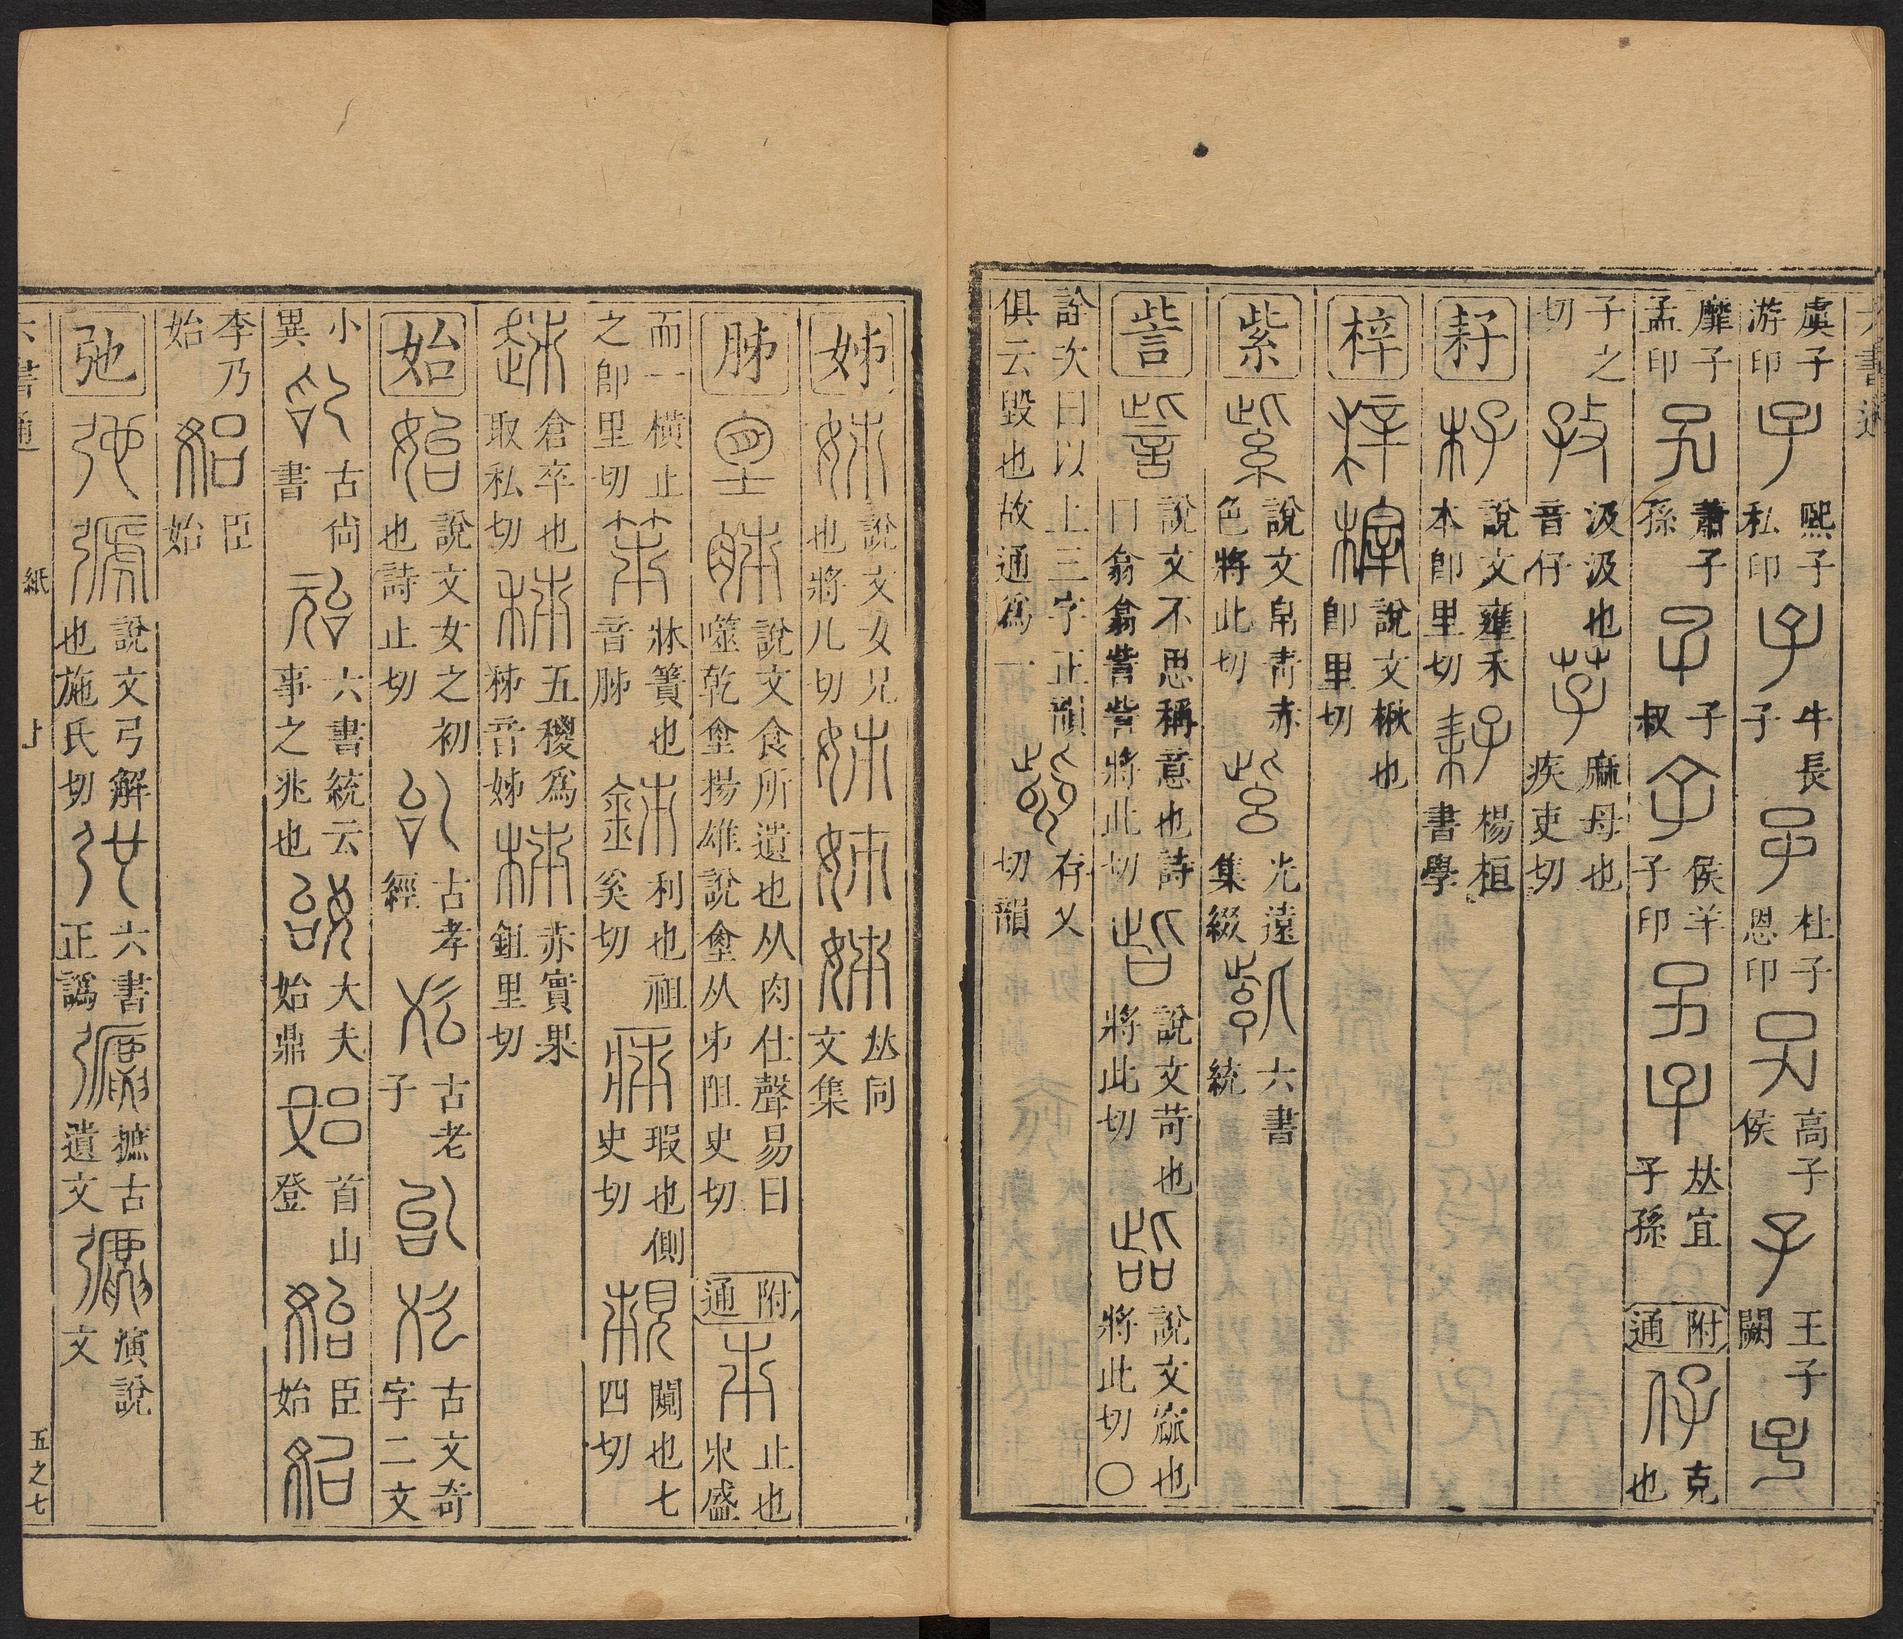 六書通
虞子游印 子 熙子私印 子 牛長子 子 杜子恩印 子 高子侯 子 王子闕 子
靡子孟印 子 蕭子孫 子 子叔 子 侯羊子印 子 子 𠀤宜子孫 附通 仔 克也
子之切 孜 汲汲也音仔 芓 麻母也疾吏切
耔 秄 說文壅禾本即里切 耔 楊桓書學
梓 梓 梓 說文楸也即里切
紫 紫 說文帛青赤色將此切 光遠集綴 六書統
訾 訾 說文不思稱意也詩曰翕翕訾訾將此切 呰 說文苛也將此切 啙 說文窳也將此切〇
詮次曰以上三字正韻俱云毀也故通為一 存乂切韻
姊 姊 說文女兄也將几切 姊 姊 姊 𠀤同文集
胏 說文食所遺也从肉仕聲易曰噬乾㙯揚雄說㙯从𠂔阻史切 附通 𠂔 止也𣎵盛
而一橫止之即里切 笫 牀簀也音胏 利也祖奚切 瑕也側史切 覟 闚也七四切
趀 倉卒也取私切 秭 五稯為秭音姊 柹 赤實果鉏里切
始 始 說文女之初也詩止切 古孝經 古老子 古文奇字二文
小異 古尚書 六書統云事之兆也 大夫始鼎 首山登 臣始
李乃始 臣始
弛 弛 說文弓解也施氏切 六書正譌 摭古遺文 演說文
六書通 紙 上 五之七